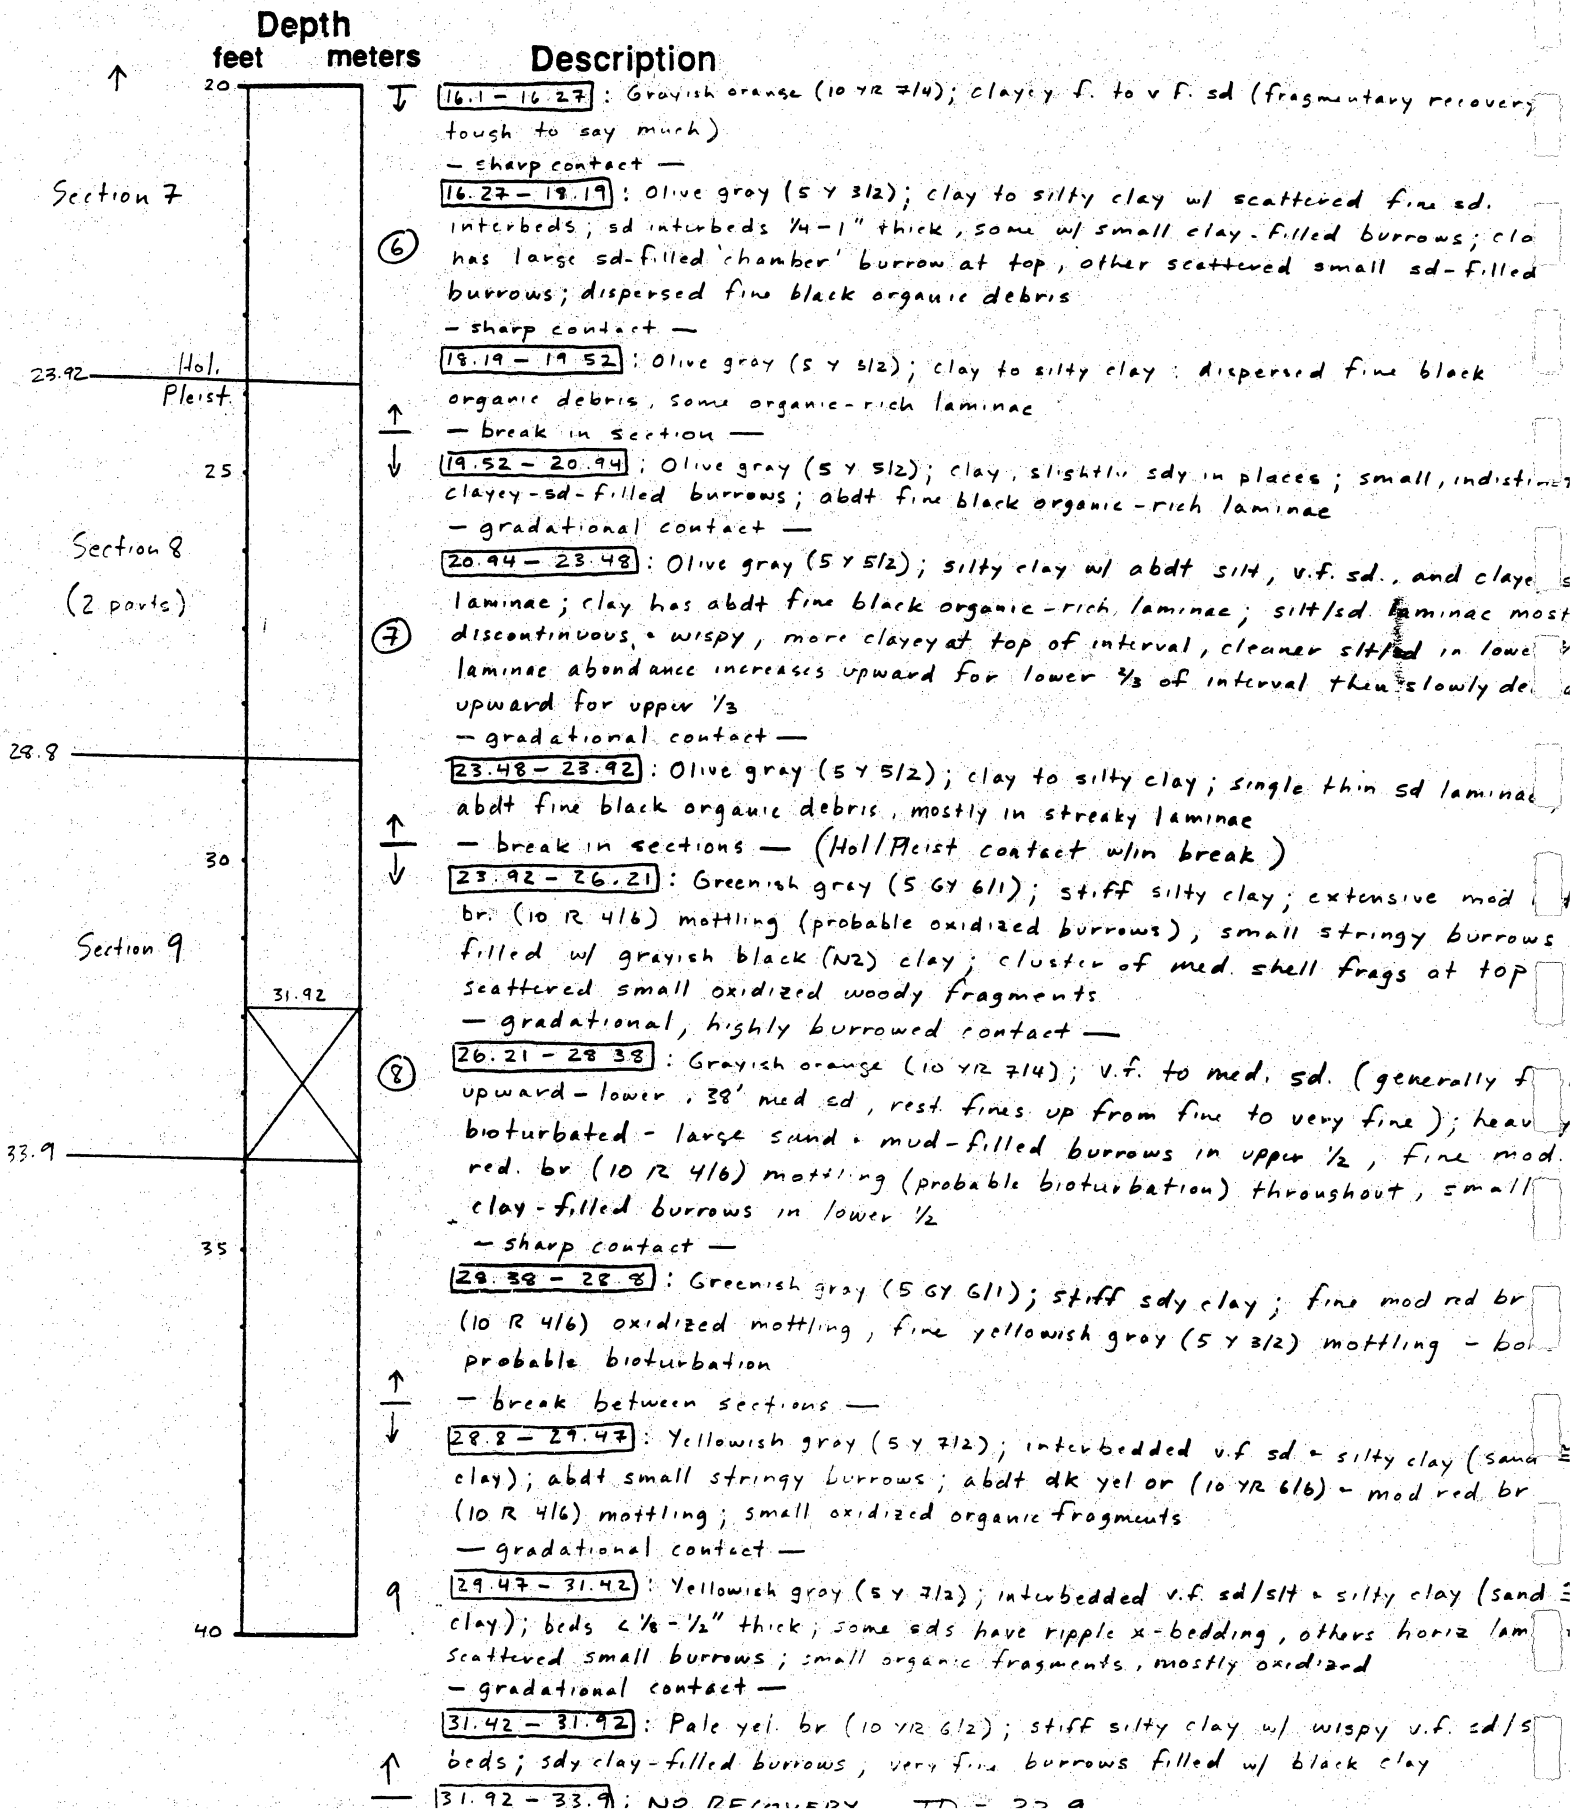 Depth
feet meters Description
20
16.1 - 16.27 : Grayish orange (10 YR 7/4); clayey f. to v f. sd (fragmentary recovery
tough to say much)
— sharp contact —
Section 7
16.27 - 18.19 : Olive gray (5 Y 3/2); clay to silty clay w/ scattered fine sd.
interbeds; sd interbeds 1/4 - 1" thick, some w/ small clay-filled burrows; cla
6
has large sd-filled 'chamber' burrow at top, other scattered small sd-filled
burrows; dispersed fine black organic debris
— sharp contact —
18.19 - 19.52 : Olive gray (5 Y 3/2); clay to silty clay : dispersed fine black
23.92 Hol.
Pleist.
organic debris, some organic-rich laminae
— break in section —
25
19.52 - 20.94 ; Olive gray (5 Y 5/2); clay, slightly sdy in places; small, indistinct
clayey-sd-filled burrows; abdt fine black organic-rich laminae
— gradational contact —
Section 8
20.94 - 23.48 : Olive gray (5 Y 5/2); silty clay w/ abdt silt, v.f. sd., and claye s
(2 parts)
laminae; clay has abdt fine black organic-rich laminae; silt/sd laminae most
7
discontinuous + wispy, more clayey at top of interval, cleaner slt/sd in lowe
laminae abundance increases upward for lower 2/3 of interval then slowly de
upward for upper 1/3
— gradational contact —
28.8
23.48 - 23.92 : Olive gray (5 Y 5/2); clay to silty clay; single thin sd laminae
abdt fine black organic debris, mostly in streaky laminae
— break in sections — (Hol/Pleist contact w/in break)
30
23.92 - 26.21 : Greenish gray (5 GY 6/1); stiff silty clay; extensive mod
br. (10 R 4/6) mottling (probable oxidized burrows), small stringy burrows
Section 9
filled w/ grayish black (N2) clay; cluster of med. shell frags at top
31.92
scattered small oxidized woody fragments
— gradational, highly burrowed contact —
8
26.21 - 28.38 : Grayish orange (10 YR 7/4); v.f. to med. sd. (generally f
upward - lower .38' med sd, rest fines up from fine to very fine); heav y
33.9
bioturbated - large sand + mud-filled burrows in upper 1/2, fine mod.
red. br (10 R 4/6) mottling (probable bioturbation) throughout, small
clay-filled burrows in lower 1/2
35
— sharp contact —
28.38 - 28.8 : Greenish gray (5 GY 6/1); stiff sdy clay; fine mod red br
(10 R 4/6) oxidized mottling, fine yellowish gray (5 Y 3/2) mottling - bo
probable bioturbation
— break between sections —
28.8 - 29.47 : Yellowish gray (5 Y 7/2); interbedded v.f sd + silty clay (sand ≅
clay); abdt small stringy burrows; abdt dk yel or (10 YR 6/6) + mod red br
(10 R 4/6) mottling; small oxidized organic fragments
— gradational contact —
9
29.47 - 31.42 : Yellowish gray (5 Y 7/2); interbedded v.f. sd/slt + silty clay (sand ≅
40
clay); beds < 1/8 - 1/2" thick; some sds have ripple x-bedding, others horiz lam
scattered small burrows; small organic fragments, mostly oxidized
— gradational contact —
31.42 - 31.92 : Pale yel. br (10 YR 6/2); stiff silty clay w/ wispy v.f. sd/s
beds; sdy clay-filled burrows; very fine burrows filled w/ black clay
31.92 - 33.9 : NO RECOVERY TD = 33.9